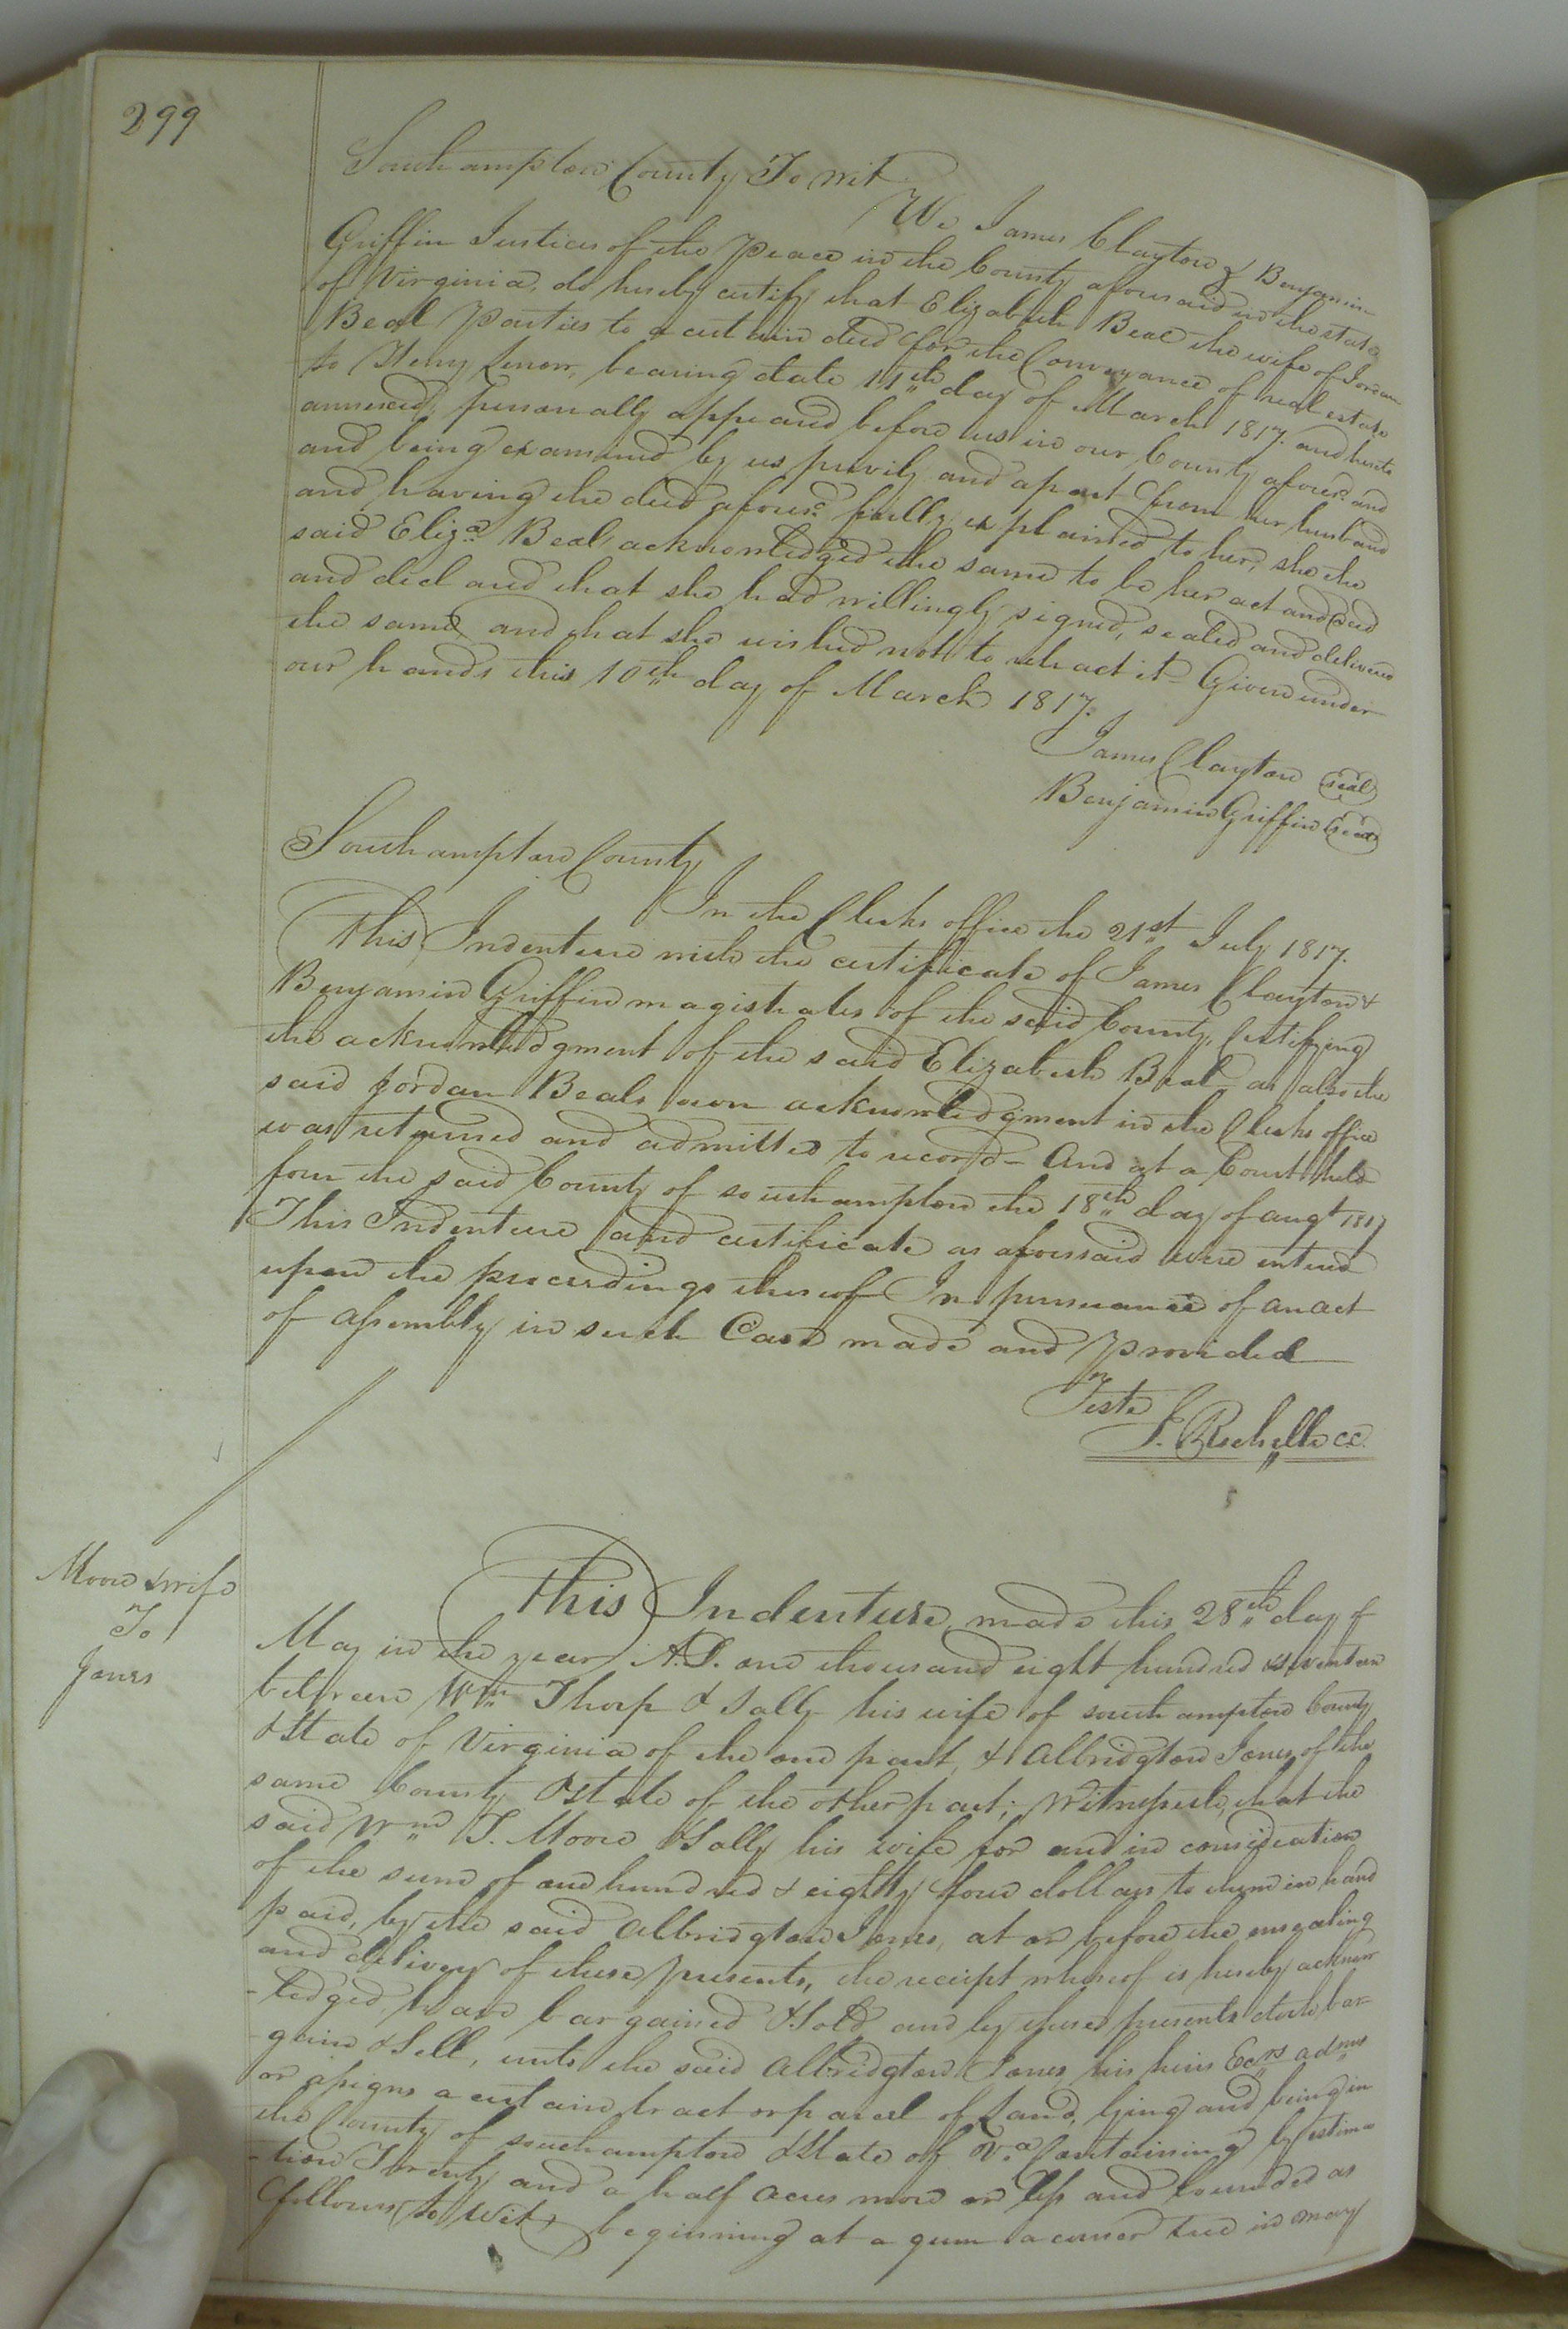 299
Southampton County To wit
We James Clayton & Benjamin
Griffin Justices of the Peace in the County aforesaid in the state
of Virginia, do hereby certify that Elizabeth Beal the wife of Jordan
Beal Parties to a certain deed for the Conveyance of real estate
to Henry , bearing date 11th day of March 1817. and hereto
annexed, personally appeared before us in our County aforesd. and
and being examined by us privily and apart from her husband
and having the deed aforesd. fully explained to her, she the
said Eliza. Beal, acknowledged the same to be her act and deed
and declared that she had willingly signed, sealed and delivered
the same, and that she wished not to retract it. Given under
our hands this 10th day of March 1817.
James Clayton (seal)
Benjamin Griffin (seal)
Southampton County
In the Clerks office the 21st July 1817.
This Indenture with the certificate of James Clayton &
Benjamin Griffin magistrates of the said County, Certifying
the acknowledgment of the said Elizabeth Beal as also the
said Jordan Beals own acknowledgment in the Clerks office
was returned and admitted to record - And at a Court held
four the said County of southampton the 18th day of augt 1817
This Indenture and certificate as aforesaid were entered
upon the proceedings thereof In pursuance of an act
of assembly in such Case made and provided
Teste
J. Rochelle c.c.
Moore & wife
To
Jones
This Indenture, made this 28th day of
May in the year A.D. one thousand eight hundred & seventeen
between Wm Thorp & Sally his wife of southampton County
& State of Virginia of the one part, & Albridgton Jones of the
same County & State of the other part; Witnesseth, that the
said Wm T. Moore & Sally his wife for and in consideration
of the sum of one hundred & eighty four dollars to them in hand
paid, by the said Albridgton Jones, at or before the ensealing
and delivery of these presents, the receipt whereof is hereby acknow
-ledged, have bargained & Sold and by these presents doth bar-
-gain & Sell, unto the said Albridgton Jones, his heirs Ecrs adms
or assigns a certain tract or parcel of Land, lying and being in
the County of southampton & State of Va. Containing by estima
-tion Twenty and a half acres more or less and bounded as
follows, to Wit, beginning at a gum a corner tree in